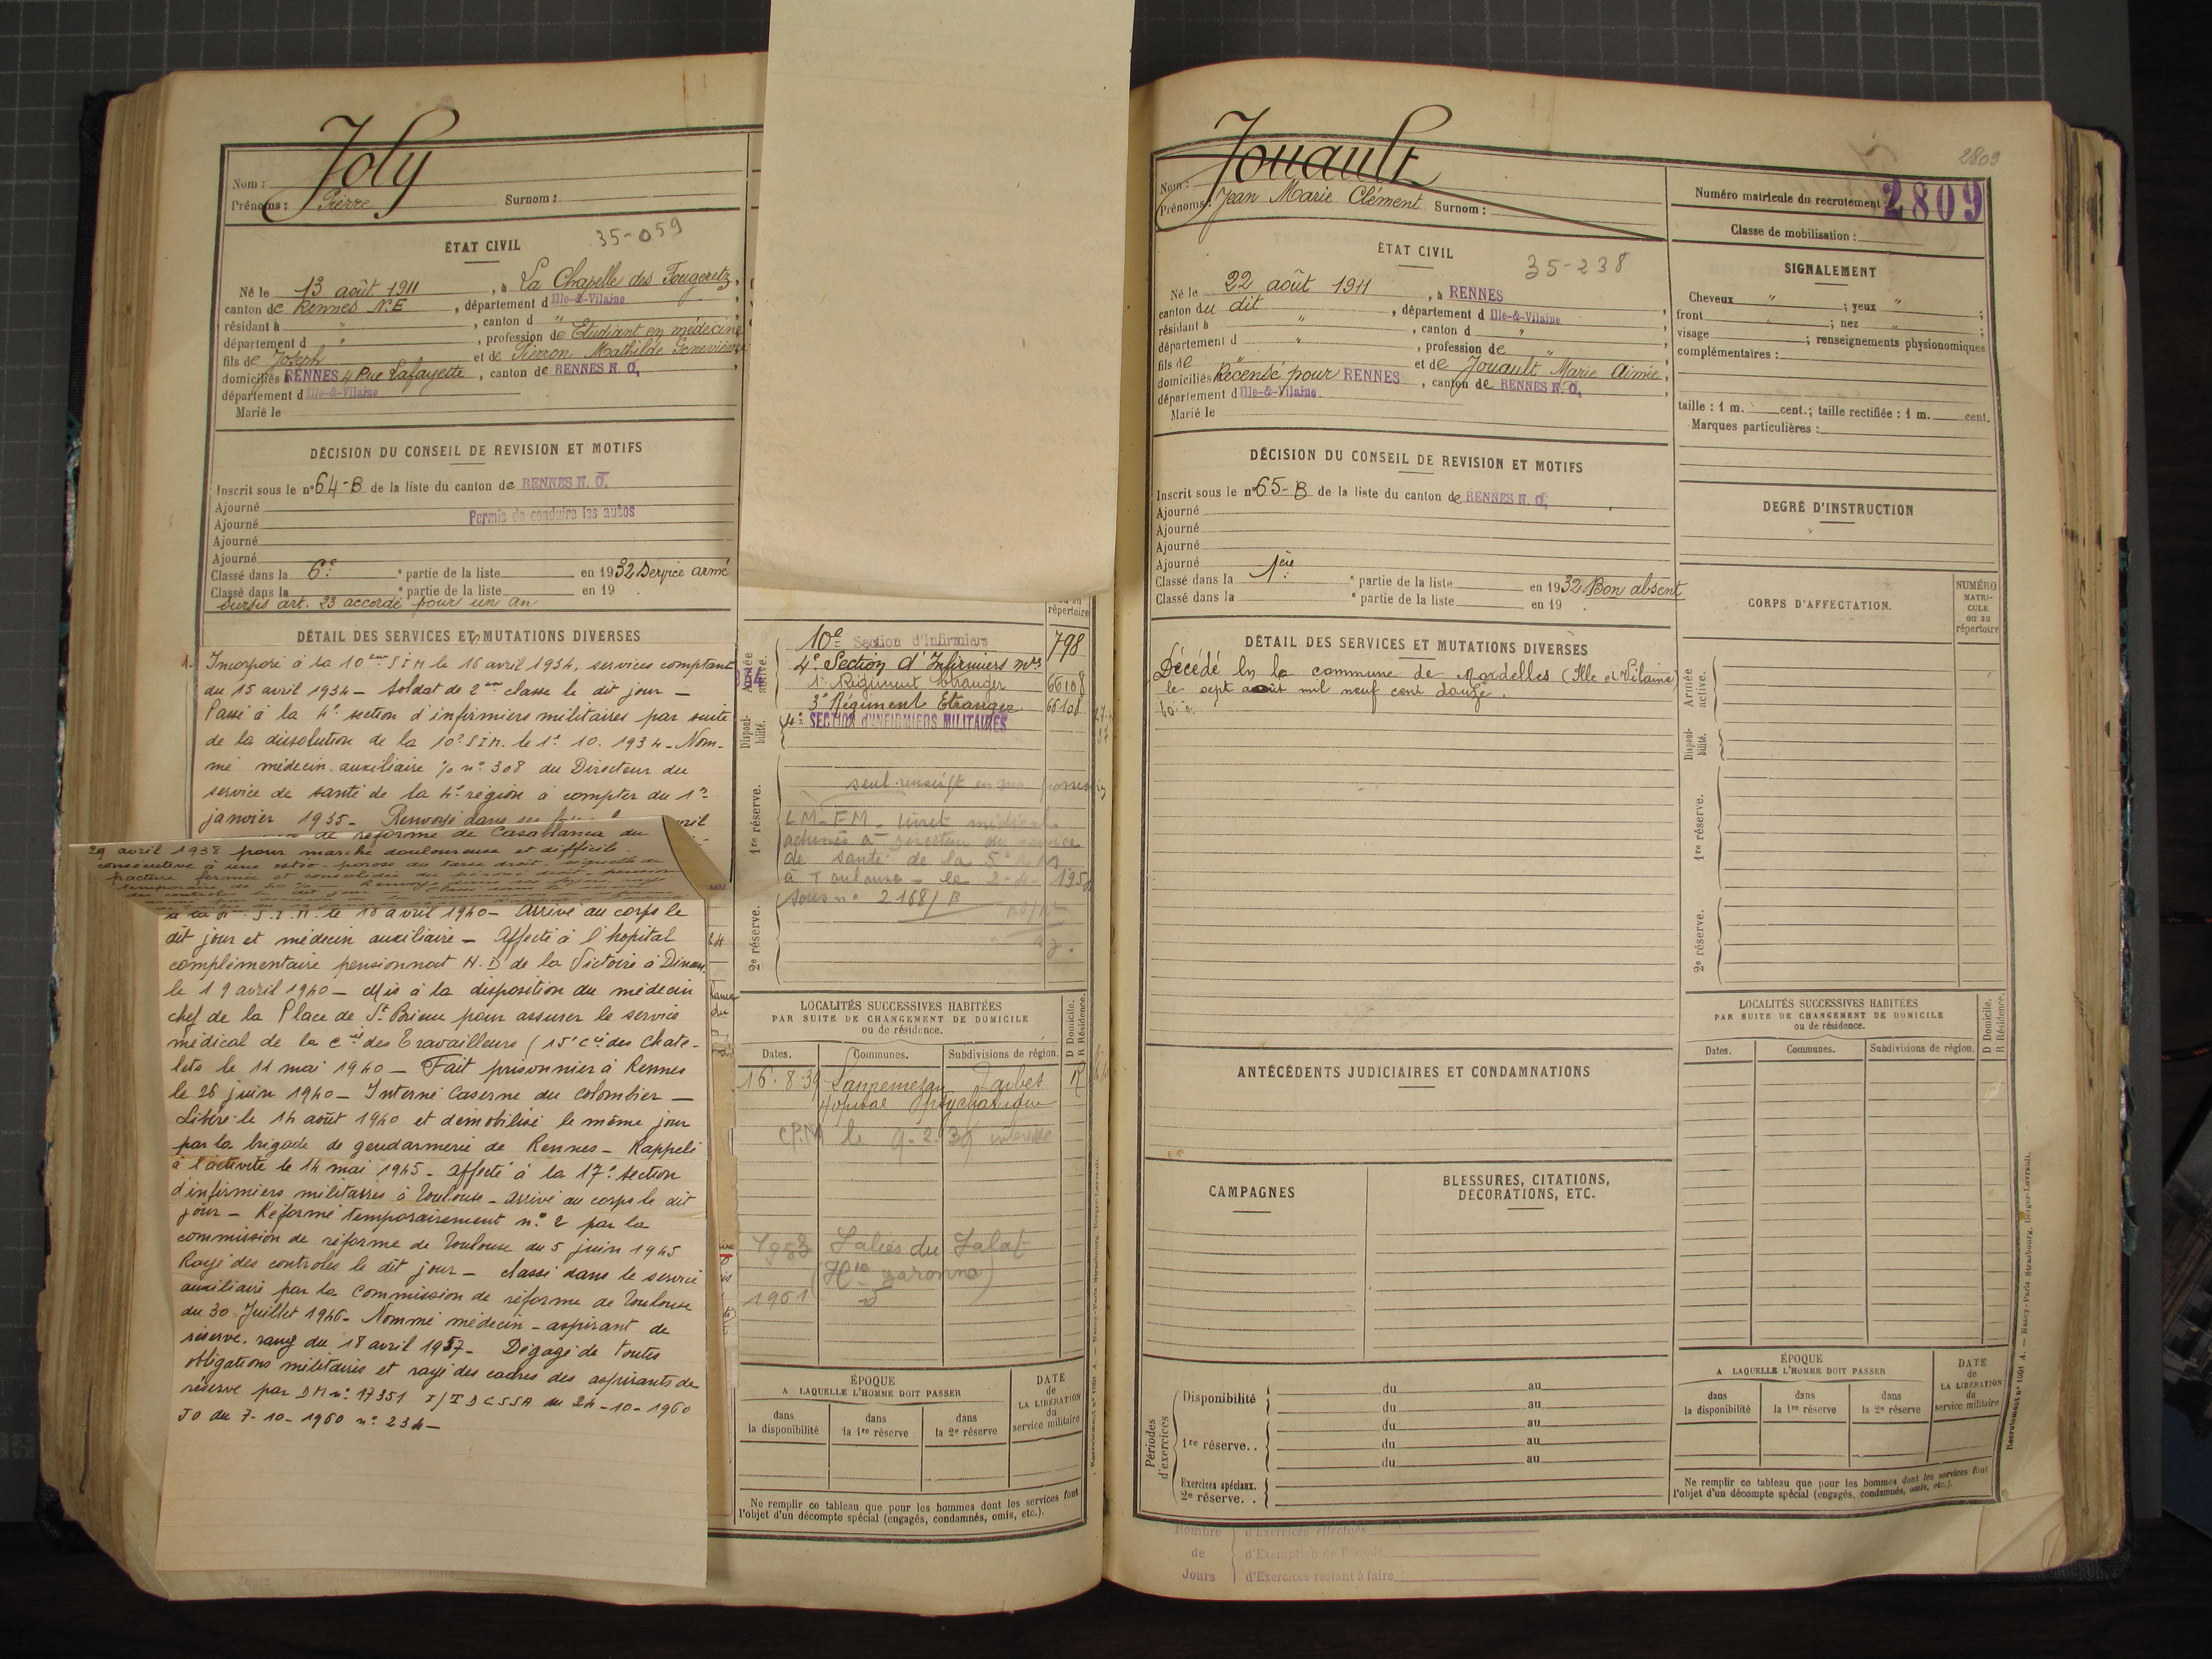 Joly
Nom :
Prénoms : Pierre Surnom :
35-059
ÉTAT CIVIL
Né le 13 août 1911, à La Chapelle des Fougeretz,
canton de Rennes N.E, département d Ille-&-Vilaine
résidant à " , canton d "
département d " , profession de Etudiant en médecine
fils de Joseph et de Pierron Mathilde Geneviève
domiciliés RENNES 4 Rue Lafayette, canton de RENNES N. O,
département d Ille-&-Vilaine
Marié le
DÉCISION DU CONSEIL DE REVISION ET MOTIFS
Inscrit sous le n° 64-B de la liste du canton de RENNES N. O.
Ajourné
Ajourné Permis de conduire les autos
Ajourné
Ajourné
Classé dans la 6e partie de la liste en 1932 Service armé
Classé dans la partie de la liste en 19
Sursis art. 23 accordé pour un an
DÉTAIL DES SERVICES ET MUTATIONS DIVERSES
Incorporé à la 10eme S I M le 16 avril 1934, services comptant
du 15 avril 1934 - Soldat de 2eme classe le dit jour -
Passé à la 4e section d'infirmiers militaires par suite
de la dissolution de la 10e S I M. le 1e 10. 1934 - Nom-
mé médecin auxiliaire % n° 308 du Directeur du
service de santé de la 4e région à compter du 1er
janvier 1935 - Renvoyé dans ses
de réforme de Casablanca du
29 avril 1938 pour marche douloureuse et difficile
consécutive à une ostéo-porose du tarse droit, séquelle de
fracture fermée et consolidée du péroné droit, pension
temporaire de
S.I.M. le 18 avril 1940 - Arrivé au corps le
dit jour et médecin auxiliaire - Affecté à l'hopital
complémentaire pensionnat N.D de la Victoire à Dinan
le 19 avril 1940 - Mis à la disposition du médecin
chef de la Place de St Brieuc pour assurer le service
médical de la Cie des Travailleurs (15e Cie des Chate-
lets le 11 mai 1940 - Fait prisonnier à Rennes
le 26 juin 1940 - Interné Caserne du Colombier -
Libéré le 14 août 1940 et démobilisé le même jour
par la brigade de gendarmerie de Rennes - Rappelé
à l'activité le 14 mai 1945 - Affecté à la 17e section
d'infirmiers militaires à Toulouse - arrivé au corps le dit
jour - Réformé temporairement n° 2 par la
commission de réforme de Toulouse du 5 juin 1945
Rayé des controles le dit jour - classé dans le service
auxiliaire par la Commission de réforme de Toulouse
du 30 Juillet 1946 - Nommé médecin-aspirant de
réserve. rang du 18 avril 1957 - Dégagé de toutes
obligations militaires et rayé des cadres des aspirants de
réserve par DM n° 17351 I/T DCSSA du 24-10-1960
JO du 7-10-1960 n° 234 -
répertoire
Armée active.
10e Section d'Infirmiers 798
4e Section d'Infirmiers mres
1e Régiment Etranger 66108
3e Régiment Etranger 66108
Disponibilité.
4e SECTION d'INFIRMIERS MILITAIRES
1re réserve.
LM-FM - livret médical
de santé de la 5e
à Toulouse - le 2-4-195
sous n° 2168/B
2e réserve.
LOCALITÉS SUCCESSIVES HABITÉES
PAR SUITE DE CHANGEMENT DE DOMICILE
ou de résidence.
D Domicile.
R Résidence.
Dates. Communes. Subdivisions de région.
16.8.39 Lannemezan Tarbes R
Hopital psychiatrique
CPM le 9-2-39
1953 Salies du Salat
(Hte garonne)
1961
ÉPOQUE
A LAQUELLE L'HOMME DOIT PASSER
DATE
de
LA LIBÉRATION
du
service militaire
dans
la disponibilité
dans
la 1re réserve
dans
la 2e réserve
Ne remplir ce tableau que pour les hommes dont les services font
l'objet d'un décompte spécial (engagés, condamnés, omis, etc.).
2809
Jouault
Nom :
Prénoms : Jean Marie Clément Surnom :
Numéro matricule du recrutement : 2809
Classe de mobilisation :
ÉTAT CIVIL
35-238
Né le 22 août 1911, à RENNES
canton du dit , département d Ille-&-Vilaine
résidant à " , canton d "
département d " , profession de "
fils de " et de Jouault Marie Aimée,
domiciliés Recensé pour RENNES, canton de RENNES N. O,
département d Ille-&-Vilaine.
Marié le
SIGNALEMENT
Cheveux " ; yeux " ;
front " ; nez " ;
visage ; renseignements physionomiques
complémentaires :
taille : 1 m. cent.; taille rectifiée : 1 m. cent.
Marques particulières :
DÉCISION DU CONSEIL DE REVISION ET MOTIFS
Inscrit sous le n° 65-B de la liste du canton de RENNES N. O,
Ajourné
Ajourné
Ajourné
Ajourné
Classé dans la 1ère partie de la liste en 1932 Bon absent
Classé dans la partie de la liste en 19
DEGRÉ D'INSTRUCTION
"
DÉTAIL DES SERVICES ET MUTATIONS DIVERSES
Décédé en la commune de Mordelles (Ille et Vilaine)
le sept août mil neuf cent douze.
CORPS D'AFFECTATION.
NUMÉRO
MATRI-
CULE
OU AU
répertoire
Armée active.
Disponibilité.
1re réserve.
2e réserve.
ANTÉCÉDENTS JUDICIAIRES ET CONDAMNATIONS
CAMPAGNES
BLESSURES, CITATIONS,
DÉCORATIONS, ETC.
LOCALITÉS SUCCESSIVES HABITÉES
PAR SUITE DE CHANGEMENT DE DOMICILE
ou de résidence.
D Domicile.
R Résidence.
Dates. Communes. Subdivisions de région.
Périodes d'exercices
Disponibilité du au
du au
1re réserve.. du au
du au
du au
Exercices spéciaux.
2e réserve. .
ÉPOQUE
A LAQUELLE L'HOMME DOIT PASSER
DATE
de
LA LIBÉRATION
du
service militaire
dans
la disponibilité
dans
la 1re réserve
dans
la 2e réserve
Ne remplir ce tableau que pour les hommes dont les services font
l'objet d'un décompte spécial (engagés, condamnés, omis, etc.).
Nombre d'Exercices effectués
de d'Exemption de Période
Jours d'Exercices restant à faire